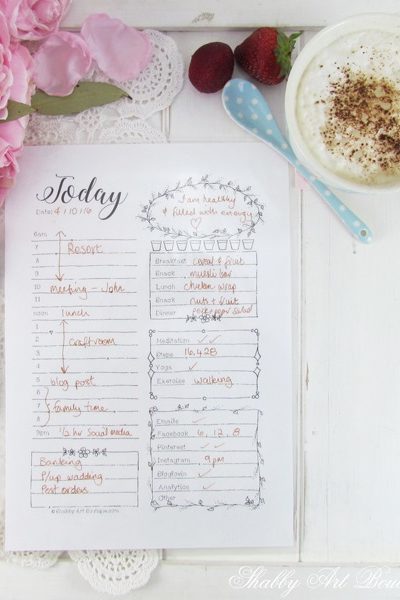 Today
Date: 4/10/16
I am healthy
& filled with energy
6am
7
8 Resort
9
10 meeting - John
11
noon lunch
1
2 Craftroom
3
4
5 blog post
6
7 family time
8
9pm 1/2 hr Social media
Banking
P/up wadding
Post orders
Breakfast cereal & fruit
Break muesli bar
Lunch chicken wrap
Break nuts + fruit
Dinner
Meditation ✓✓
Steps 16,428
Yoga ✓
Exercise walking
Emails ✓ ✓
Facebook 6, 12, 8
Pinterest ✓ ✓
Instagram 9pm
Bloglovin ✓
Analytics ✓ ✓
Other
Shabby Art Bou